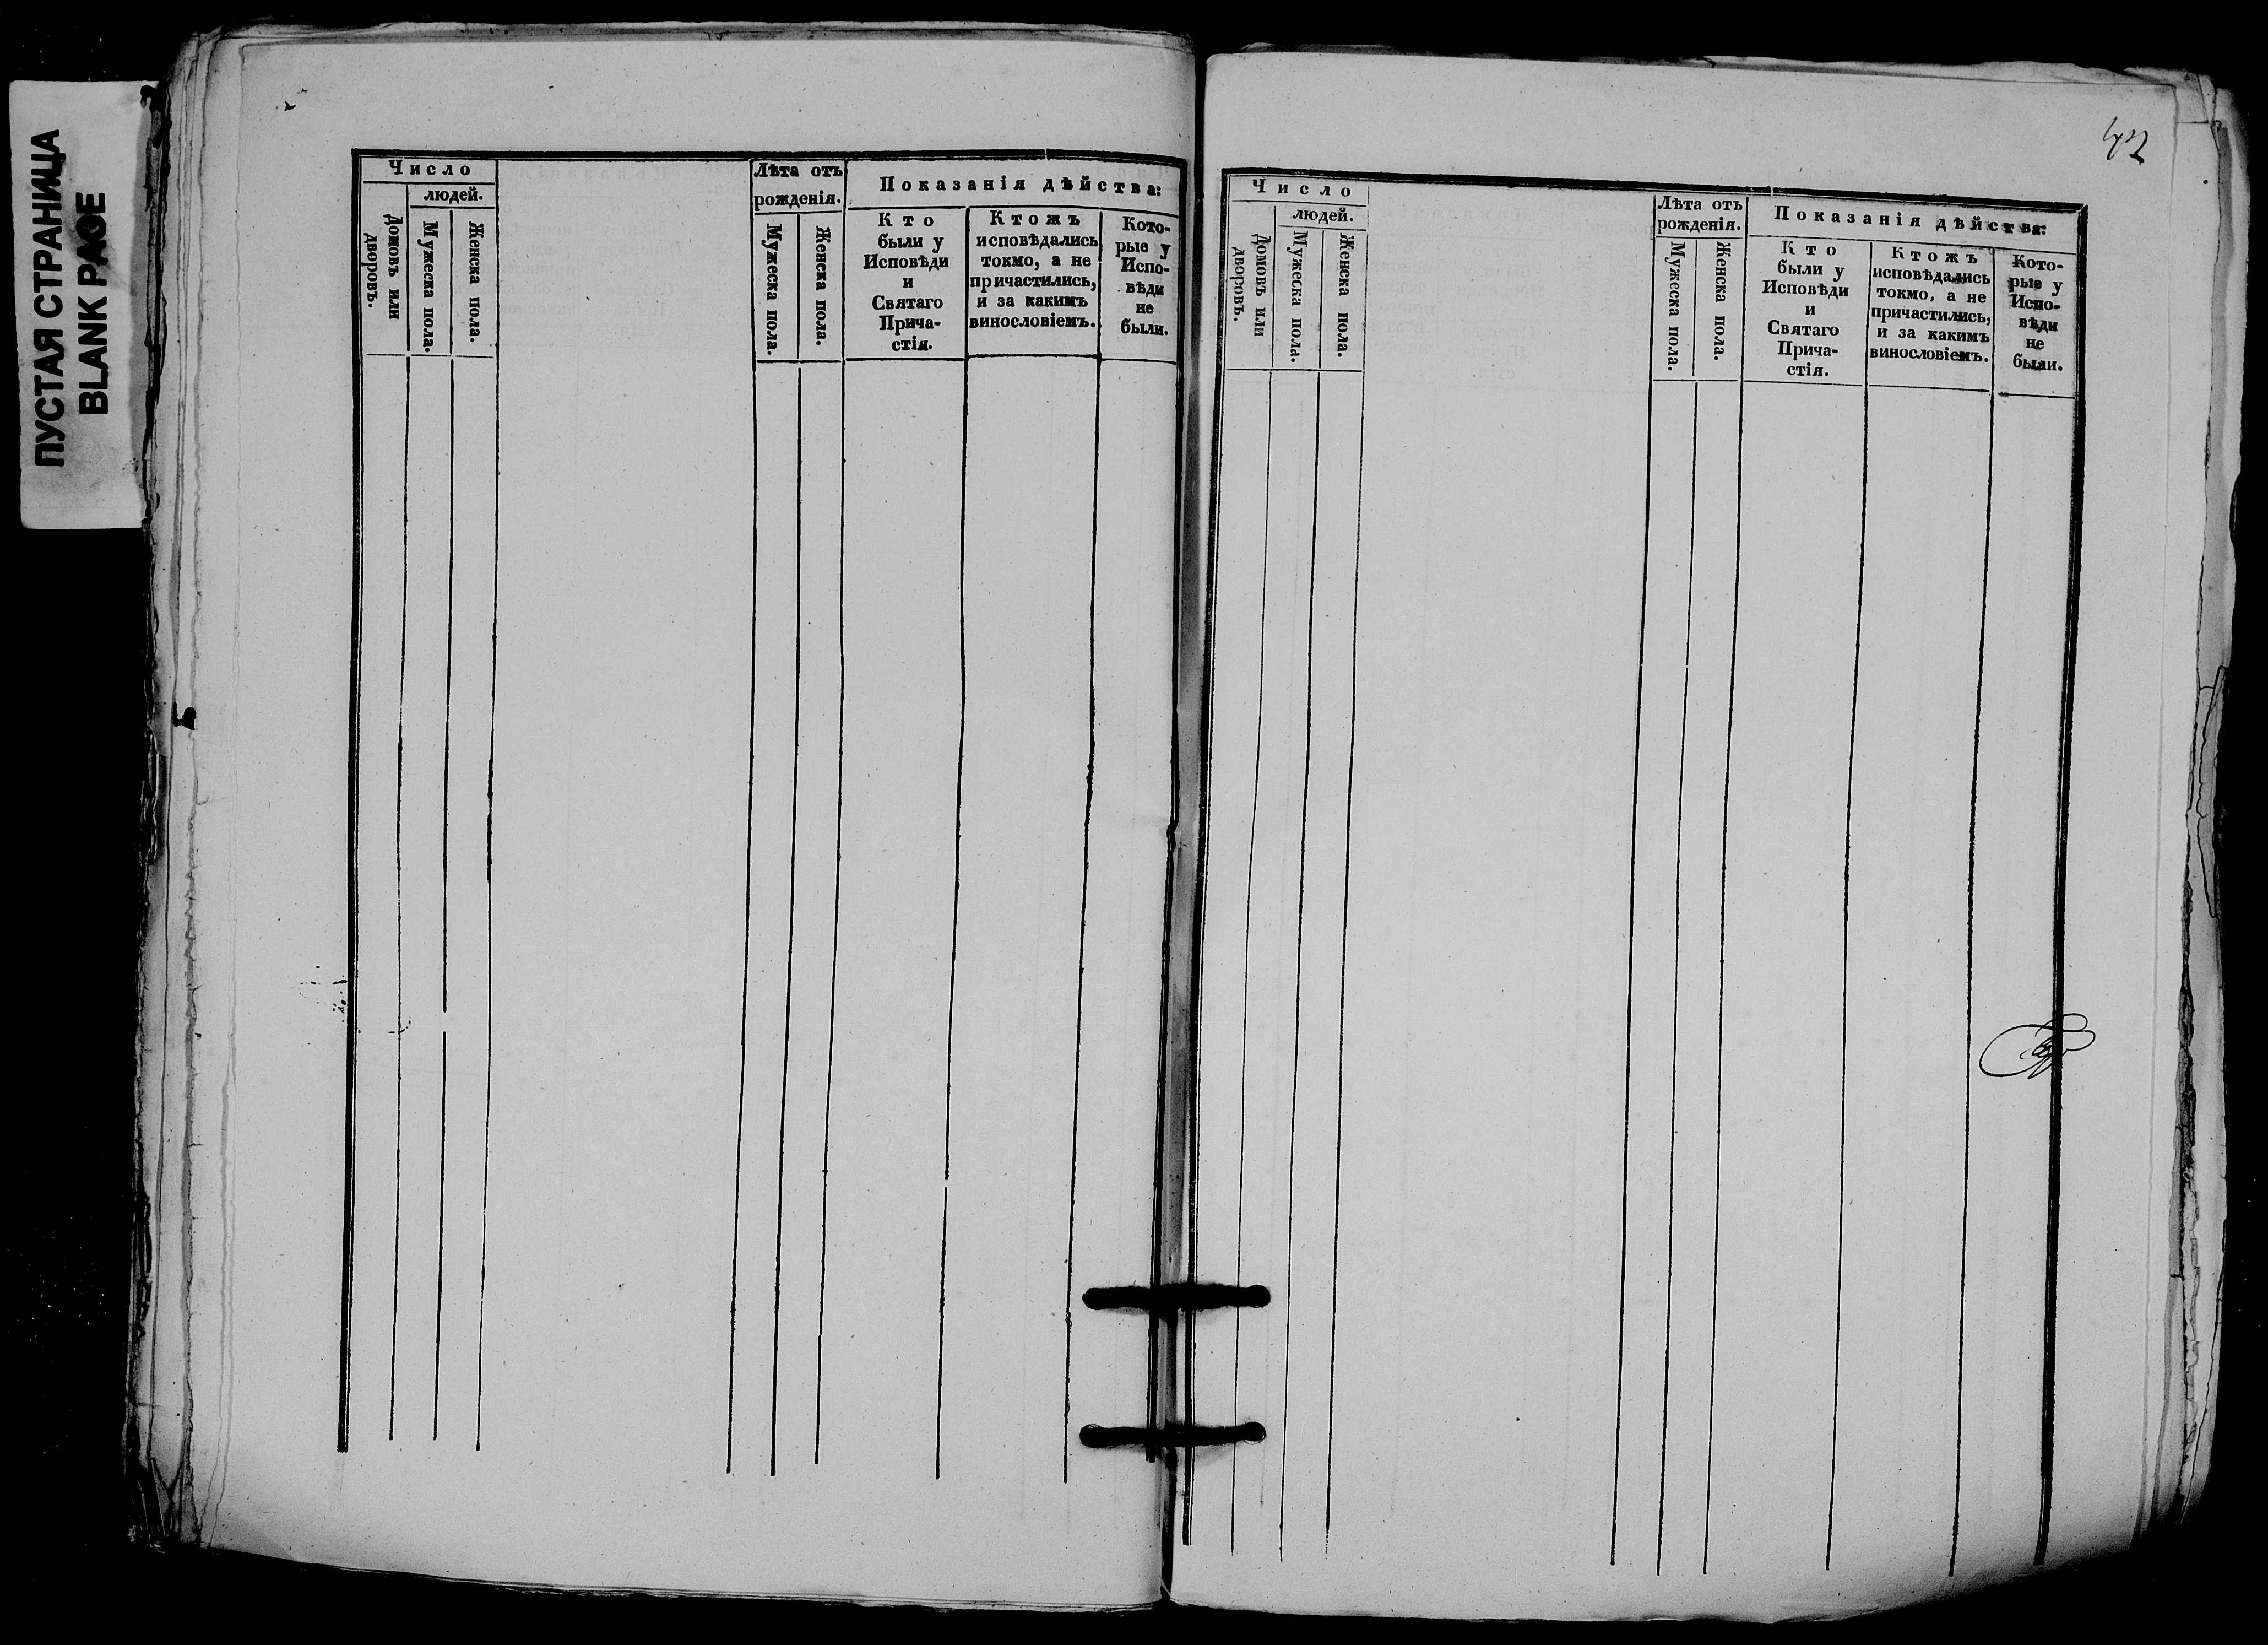 ПУСТАЯ СТРАНИЦА
BLANK PAGE
Число
людей.
Домовъ или
дворовъ.
Мужеска пола.
Женска пола.
Лѣта отъ
рожденія.
Мужеска пола.
Женска пола.
Показанія дѣйства:
Кто
были у
Исповѣди
и
Святаго
Прича-
стія.
Ктожъ
исповѣдались
токмо, а не
причастились,
и за какимъ
винословіемъ.
Кото-
рые у
Испо-
вѣди
не
были.
42
Число
людей.
Домовъ или
дворовъ.
Мужеска пола.
Женска пола.
Лѣта отъ
рожденія.
Мужеска пола.
Женска пола.
Показанія дѣйства:
Кто
были у
Исповѣди
и
Святаго
Прича-
стія.
Ктожъ
исповѣдались
токмо, а не
причастились,
и за какимъ
винословіемъ.
Кото-
рые у
Испо-
вѣди
не
были.